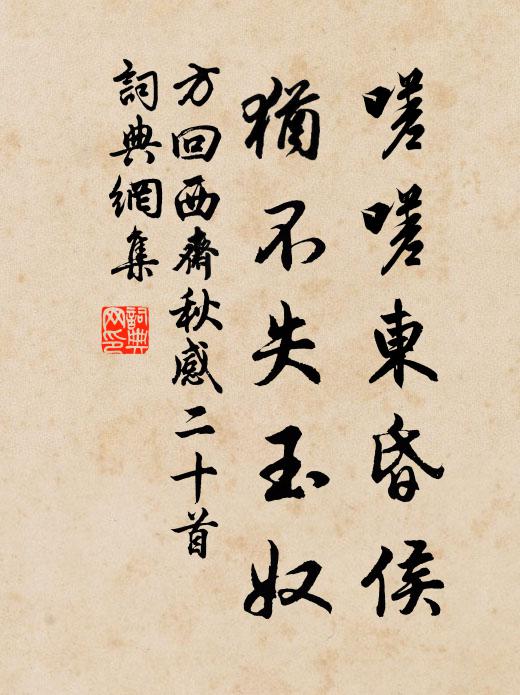 嗟嗟東昏侯
猶不失玉奴
方回西齋秋感二十首
詞典網集
詞典网印